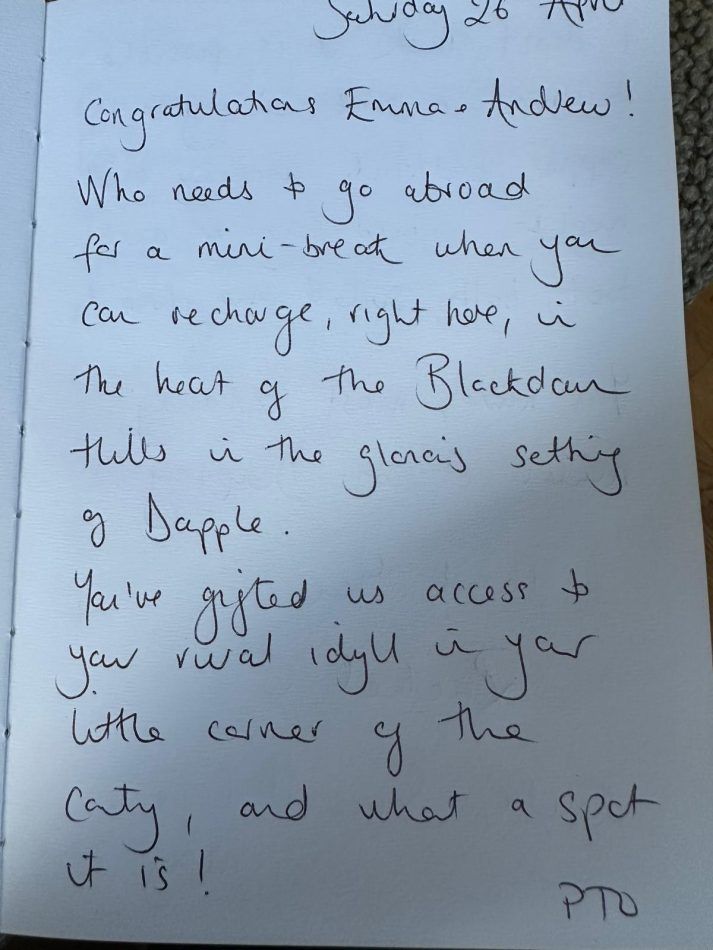 Saturday 26 April
Congratulations Emma & Andrew!
Who needs to go abroad
for a mini-break when you
can recharge, right here, in
the heart of the Blackdown
Hills in the glorious setting
of Dapple.
You've gifted us access to
your rural idyll in your
little corner of the
County, and what a spot
it is!
PTO